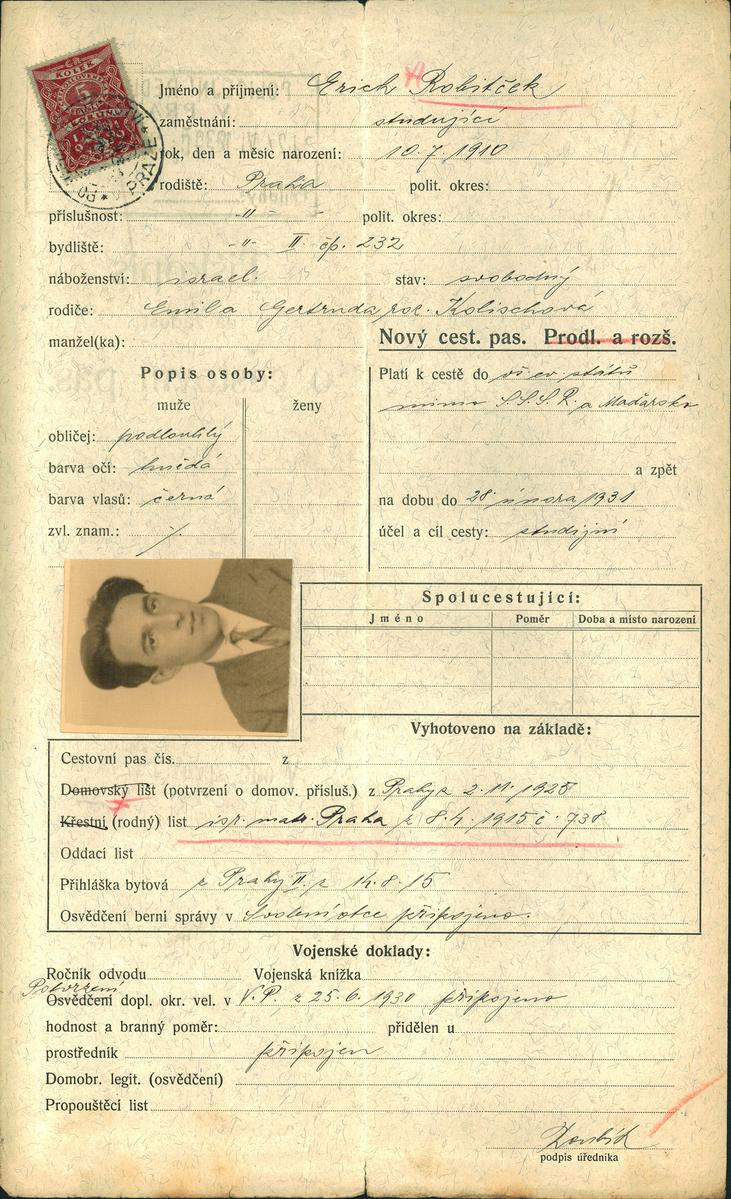 KOLEK
5
KORUN
PRAZE
Jméno a příjmení: Erich Robitček
zaměstnání: studující
rok, den a měsíc narození: 10.7.1910
rodiště: Praha polit. okres:
příslušnost: -"- polit. okres:
bydliště: -"- II čp. 232
náboženství: israel. stav: svobodný
rodiče: Emil a Gertruda roz. Kolischová
manžel(ka):
Nový cest. pas. Prodl. a rozš.
Popis osoby:
muže ženy
obličej: podlouhlý
barva očí: hnědá
barva vlasů: černá
zvl. znam.: ./.
Platí k cestě do vš. ev. států
mimo S.S.S.R. a Maďarska
a zpět
na dobu do 28 února 1931
účel a cíl cesty: studijní
Spolucestující:
Jméno Poměr Doba a místo narození
Vyhotoveno na základě:
Cestovní pas čís. z
Domovský list (potvrzení o domov. přísluš.) z Prahy z 2.11.1925
Křestní (rodný) list isr. matr. Praha z 8.4.1915 č. 738
Oddací list
Přihláška bytová z Prahy II. z 14.8.15
Osvědčení berní správy v připojeno.
Vojenské doklady:
Ročník odvodu Vojenská knížka
Potvrzení
Osvědčení dopl. okr. vel. v V.P. z 25.6.1930 připojeno
hodnost a branný poměr: přidělen u
prostředník připojen
Domobr. legit. (osvědčení)
Propouštěcí list
podpis úředníka